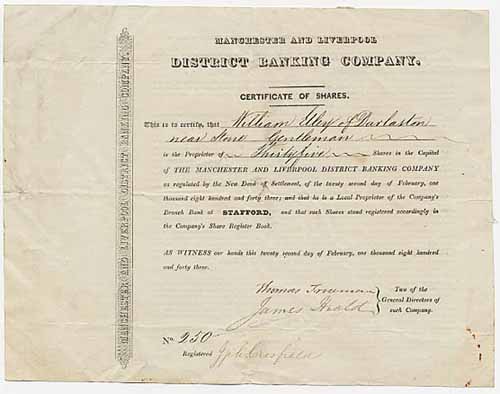 MANCHESTER AND LIVERPOOL DISTRICT BANKING COMPANY.
MANCHESTER AND LIVERPOOL
DISTRICT BANKING COMPANY.
CERTIFICATE OF SHARES.
This is to certify, that William of Darlaston
near Stone Gentleman
is the Proprietor of Thirtyfive Shares in the Capital
of THE MANCHESTER AND LIVERPOOL DISTRICT BANKING COMPANY
as regulated by the New Deed of Settlement, of the twenty second day of February, one
thousand eight hundred and forty three; and that he is a Local Proprietor of the Company's
Branch Bank of STAFFORD, and that such Shares stand registered accordingly in
the Company's Share Register Book.
AS WITNESS our hands this twenty second day of February, one thousand eight hundred
and forty three.
Thomas
James Heald
Two of the
General Directors of
such Company.
No. 250
Registered